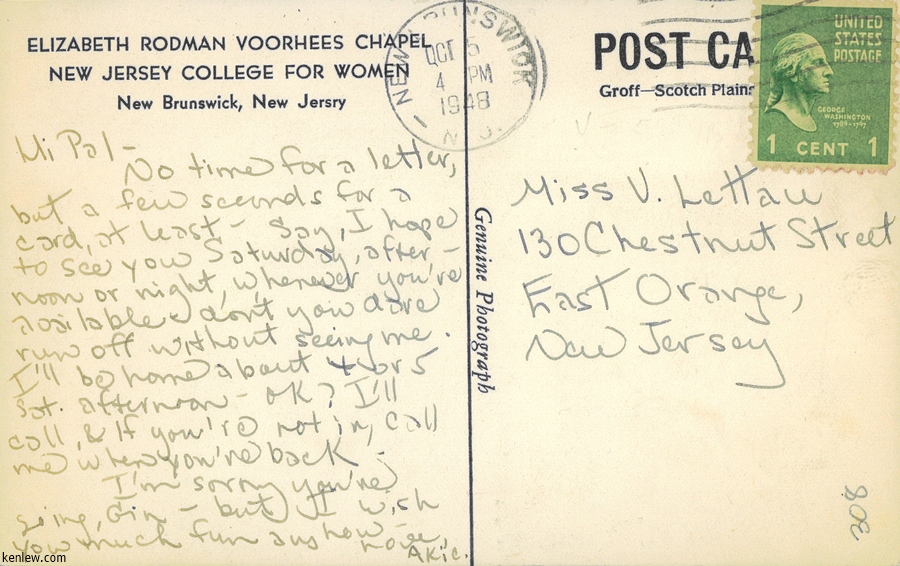 ELIZABETH RODMAN VOORHEES CHAPEL
NEW JERSEY COLLEGE FOR WOMEN
New Brunswick, New Jersry
Hi Pal-
No time for a letter,
but a few seconds for a
card, at least - Say, I hope
to see you Saturday, after-
noon or night, whenever you're
available - don't you dare
run off without seeing me.
I'll be home about 4 or 5
Sat. afternoon - OK? I'll
call, & if you're not in, call
me when you're back -
I'm sorry you're
going, Gin - but I wish
you much fun anyhow -
Akie.
NEW BRUNSWICK
OCT 5
4 PM
1948
N.J.
POST CA
Groff—Scotch Plains
UNITED
STATES
POSTAGE
GEORGE
WASHINGTON
1789-1797
1 CENT 1
Genuine Photograph
Miss V. Lettau
130 Chestnut Street
East Orange,
New Jersey
308
kenlew.com